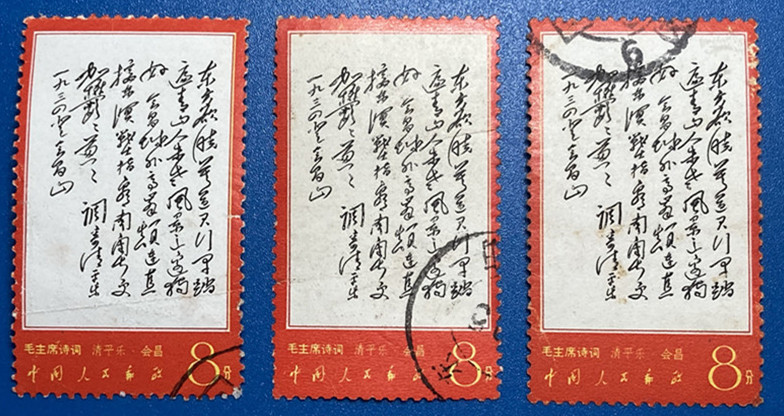 东方欲晓莫道君行早踏
遍青山人未老风景这边独
好会昌城外高峰颠连直
接东溟战士指看南粤更
加郁郁葱葱 调寄清平乐
一九三四 会昌山
毛主席诗词 清平乐·会昌
中国人民邮政 8分
东方欲晓莫道君行早踏
遍青山人未老风景这边独
好会昌城外高峰颠连直
接东溟战士指看南粤更
加郁郁葱葱 调寄清平乐
一九三四 会昌山
毛主席诗词 清平乐·会昌
中国人民邮政 8分
东方欲晓莫道君行早踏
遍青山人未老风景这边独
好会昌城外高峰颠连直
接东溟战士指看南粤更
加郁郁葱葱 调寄清平乐
一九三四 会昌山
毛主席诗词 清平乐·会昌
中国人民邮政 8分